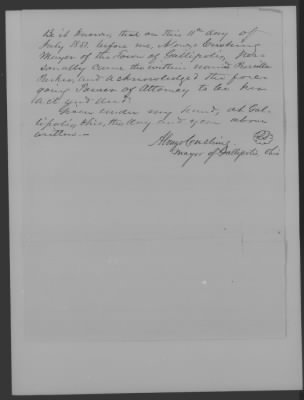 Be it known, that on this 11th day of
July 1851. before me, Alonzo Cushing
Mayor of the Town of Gallipolis, per-
sonally came the within named
Parker, and acknowledged the fore
going Power of Attorney to be her
act and deed.
Given under my hand, at Gal-
lipolis, Ohio, this day and year above
written.—
Alonzo Cushing
Mayor of Gallipolis Ohio